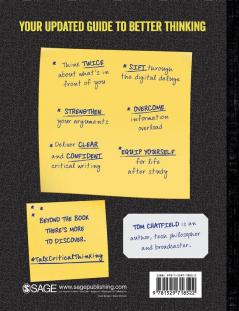 YOUR UPDATED GUIDE TO BETTER THINKING
* Think TWICE
about what's in
front of you
* SIFT through
the digital deluge
* STRENGTHEN
your arguments
* OVERCOME
information
overload
* Deliver CLEAR
and CONFIDENT
critical writing
* EQUIP YOURSELF
for life
after study
BEYOND THE BOOK
THERE'S MORE
TO DISCOVER.
#TalkCriticalThinking
TOM CHATFIELD is an
author, tech philosopher
and broadcaster.
SAGE www.sagepublishing.com
9 781529 718522